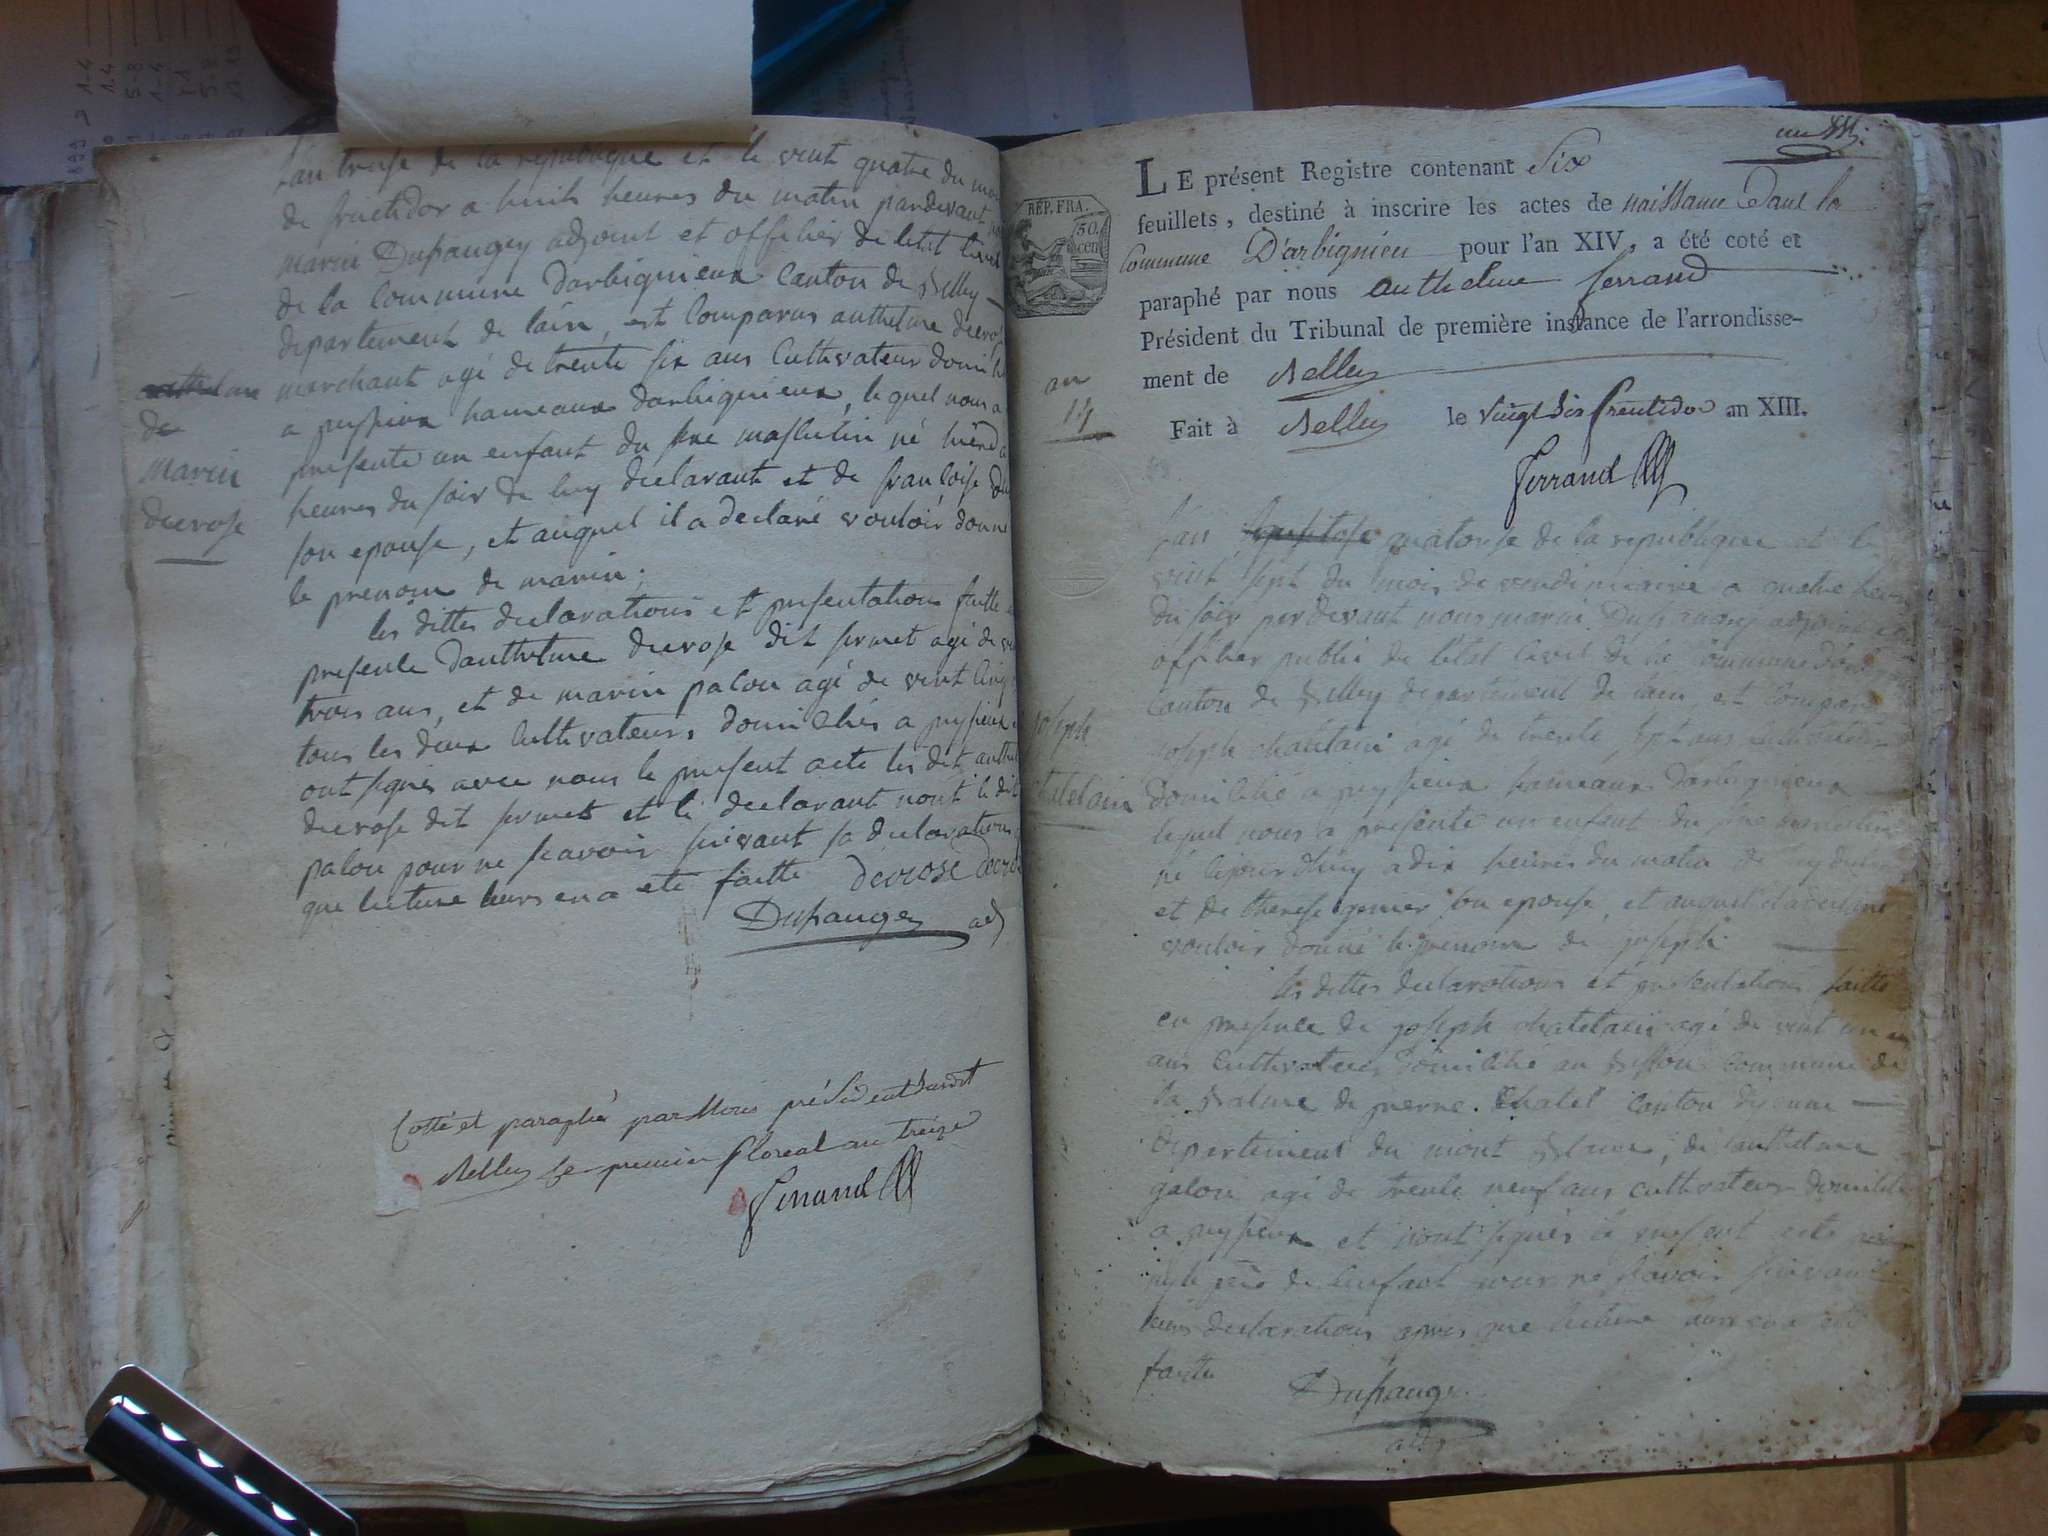 Lan treise de la republique et le vint quatre du mois
de fructidor a huit heures du matin pardevant
marin Dupaugey adjoint et offisier de letat Civil
de la Commune darbignieux Canton de Belley
departement de lain, est Comparus anthelme decrose
marchant agé de trente six ans Cultivateur domi
a peysieux hameaux darbignieux, lequel nous a
presente un enfant du sexe masculin né hier
heures du soir de luy declarant et de francoise
son epouse, et auquel il a declaré vouloir donné
le prenom de marin.
les dittes declarations et presentations faitte
presence danthelme decrose dit sermet agé de
trois ans, et de marin palou agé de vint cinq
tous les deux Cultivateurs domicilies a peysieux
ont signés avec nous le present acte les dit anthelme
decrose dit sermet et le declarant nont le dit
palou pour ne scavoir suivant sa declaration
que lecture leurs en a ete faitte decrose decrose
Dupaugey adj
de
marin
decrose
Cotté et paraphé par Nous président Susdit
Belley le premier floreal an treize
Ferrand
LE présent Registre contenant Six
feuillets, destiné à inscrire les actes de naissance Dans la
Commune D'arbignieu pour l'an XIV, a été coté et
paraphé par nous anthelme ferrand
Président du Tribunal de première instance de l'arrondisse-
ment de Belley
Fait à Belley le vingt six fructidor an XIII.
Ferrand
REP. FRA.
50
cen
an
14
Lan quatorse de la republique et le
vint sept du mois de vendimiaire a quatre heures
du soir pardevant nous marin Dupaugey adjoint
offisier public de letat Civil de la Commune
Canton de Belley departement de lain, est Comparu
joseph chatelain agé de trente sept ans cultivateur
domicilié a peysieux hameaux darbignieux
lequel nous a presente un enfant du sexe masculin
né cejourdhuy a dix heures du matin de luy
et de therese genier son epouse, et auquel il a declaré
vouloir donné le prenom de joseph
les dittes declarations et presentations faitte
en presence de joseph chatelain agé de vint un
ans Cultivateur domicilié au Commune de
la Balme de pierre Chatel Canton dyenne
departement du mont Blanc, de anthelme
galou agé de trente neuf ans cultivateur domicilié
a peysieux et nont signés le present acte
ny le père de lenfant pour ne scavoir suivant
leurs declarations apres que lecture leurs en a eté
faitte
Dupaugey
adj
joseph
chatelain